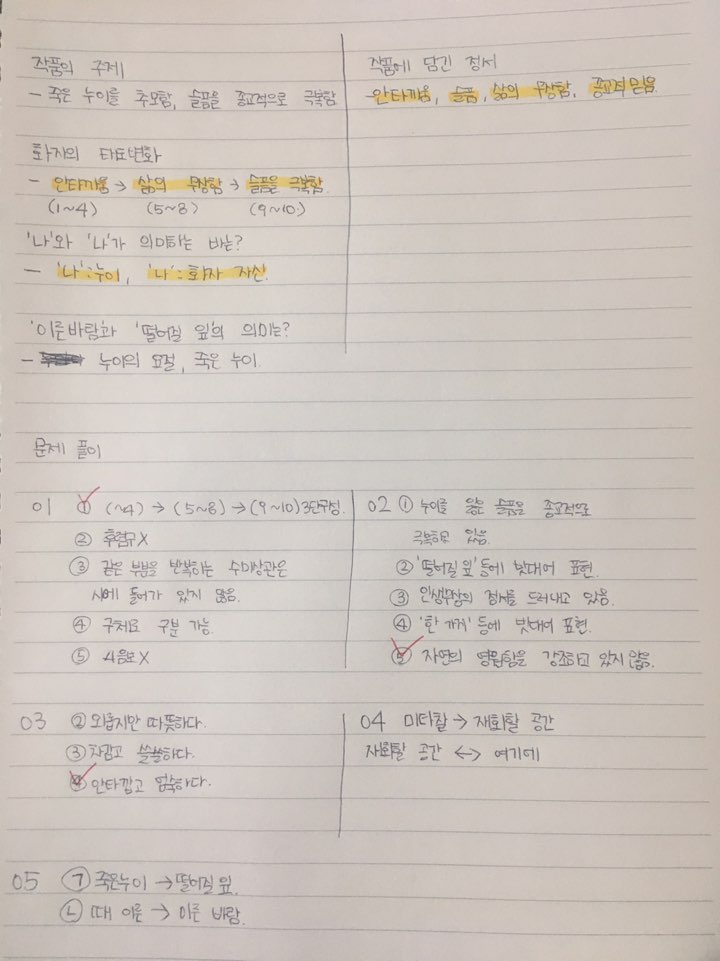 작품의 주제
- 죽은 누이를 추모함, 슬픔을 종교적으로 극복함
작품에 담긴 정서
안타까움, 슬픔, 삶의 무상함, 종교적 믿음.
화자의 태도변화
- 안타까움 → 삶의 무상함 → 슬픔을 극복함.
(1~4) (5~8) (9~10)
'나'와 '나'가 의미하는 바는?
- '나':누이, '나': 화자 자신.
'이른바람'과 '떨어질 잎'의 의미는?
- 누이의 요절, 죽은 누이.
문제 풀이
01 ① (~4) → (5~8) → (9~10) 3단구성.
② 후렴구X
③ 같은 부분을 반복하는 수미상관은
시에 들어가 있지 않음.
④ 구체요 구분 가능.
⑤ 4음보X
02 ① 누이를 잃은 슬픔을 종교적으로
극복하고 있음.
② '떨어질 잎' 등에 빗대어 표현.
③ 인생무상의 정서를 드러내고 있음.
④ '한 가지' 등에 빗대어 표현.
⑤ 자연의 영원함을 강조하고 있지 않음.
03 ② 외롭지만 따뜻하다.
③ 차갑고 쓸쓸하다.
④ 안타깝고 엄숙하다.
04 미타찰 → 재회할 공간
재회할 공간 ↔ 여기에
05 ㉠ 죽은누이 → 떨어질 잎.
㉡ 때 이른 → 이른 바람.